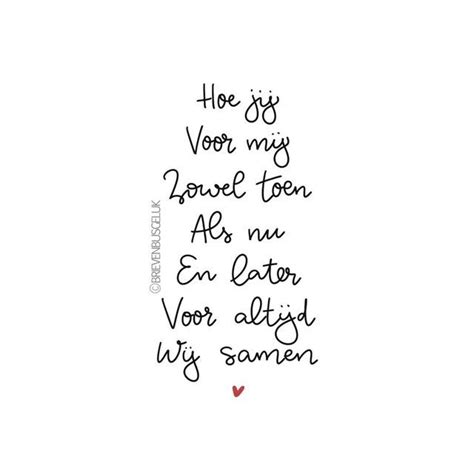 Hoe jij
Voor mij
Zowel toen
Als nu
En later
Voor altijd
Wij samen
©BRIEVENBUSGELUK